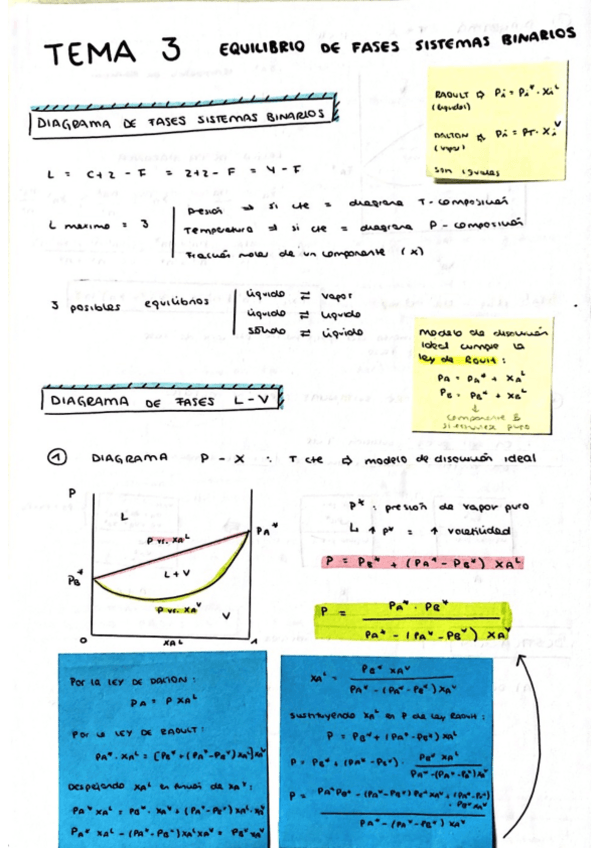 TEMA 3 EQUILIBRIO DE FASES SISTEMAS BINARIOS
RAOULT ⇨ Pi = Pi* · Xi^L
(líquidos)
DALTON ⇨ Pi = PT · Xi^V
(vapor)
son iguales
DIAGRAMA DE FASES SISTEMAS BINARIOS
L = C+2 - F = 2+2 - F = 4 - F
L máximo = 3
Presión → si cte = diagrama T - composición
Temperatura → si cte = diagrama P - composición
Fracción molar de un componente (x)
3 posibles equilibrios
Líquido ⇌ vapor
Líquido ⇌ Líquido
Sólido ⇌ Líquido
Modelo de disolución
ideal cumple la
ley de Raoult:
PA = PA* + XA^L
PB = PB* + XB^L
↓
componente B
si estuviera puro
DIAGRAMA DE FASES L - V
① DIAGRAMA P - X ∴ T cte ⇨ modelo de disolución ideal
P
L
P vs. XA^L
PA*
PB*
L + V
P vs. XA^V
V
0
XA^L
1
P* : presión de vapor puro
↳ ↑ P* = ↑ volatilidad
P = PB* + (PA* - PB*) XA^L
P = PA* · PB* / PA* - (PA* - PB*) XA^V
Por la LEY DE DALTON:
PA = P XA^L
Por la LEY DE RAOULT:
PA* · XA^L = [PB* + (PA* - PB*) XA^L] XA^V
Despejando XA^L en función de XA^V:
PA* XA^L = PB* · XA^V + (PA* - PB*) XA^L · XA^V
PA* XA^L - (PA* - PB*) XA^L XA^V = PB* XA^V
XA^L = PB* XA^V / PA* - (PA* - PB*) XA^V
sustituyendo XA^L en P de ley Raoult:
P = PB* + (PA* - PB*) XA^L
P = PB* + (PA* - PB*) · PB* XA^L / PA* - (PA* - PB*) XA^V
P = PA* PB* - (PA* - PB*) PB* XA^V + (PA* - PB*) · PB* XA^V / PA* - (PA* - PB*) XA^V